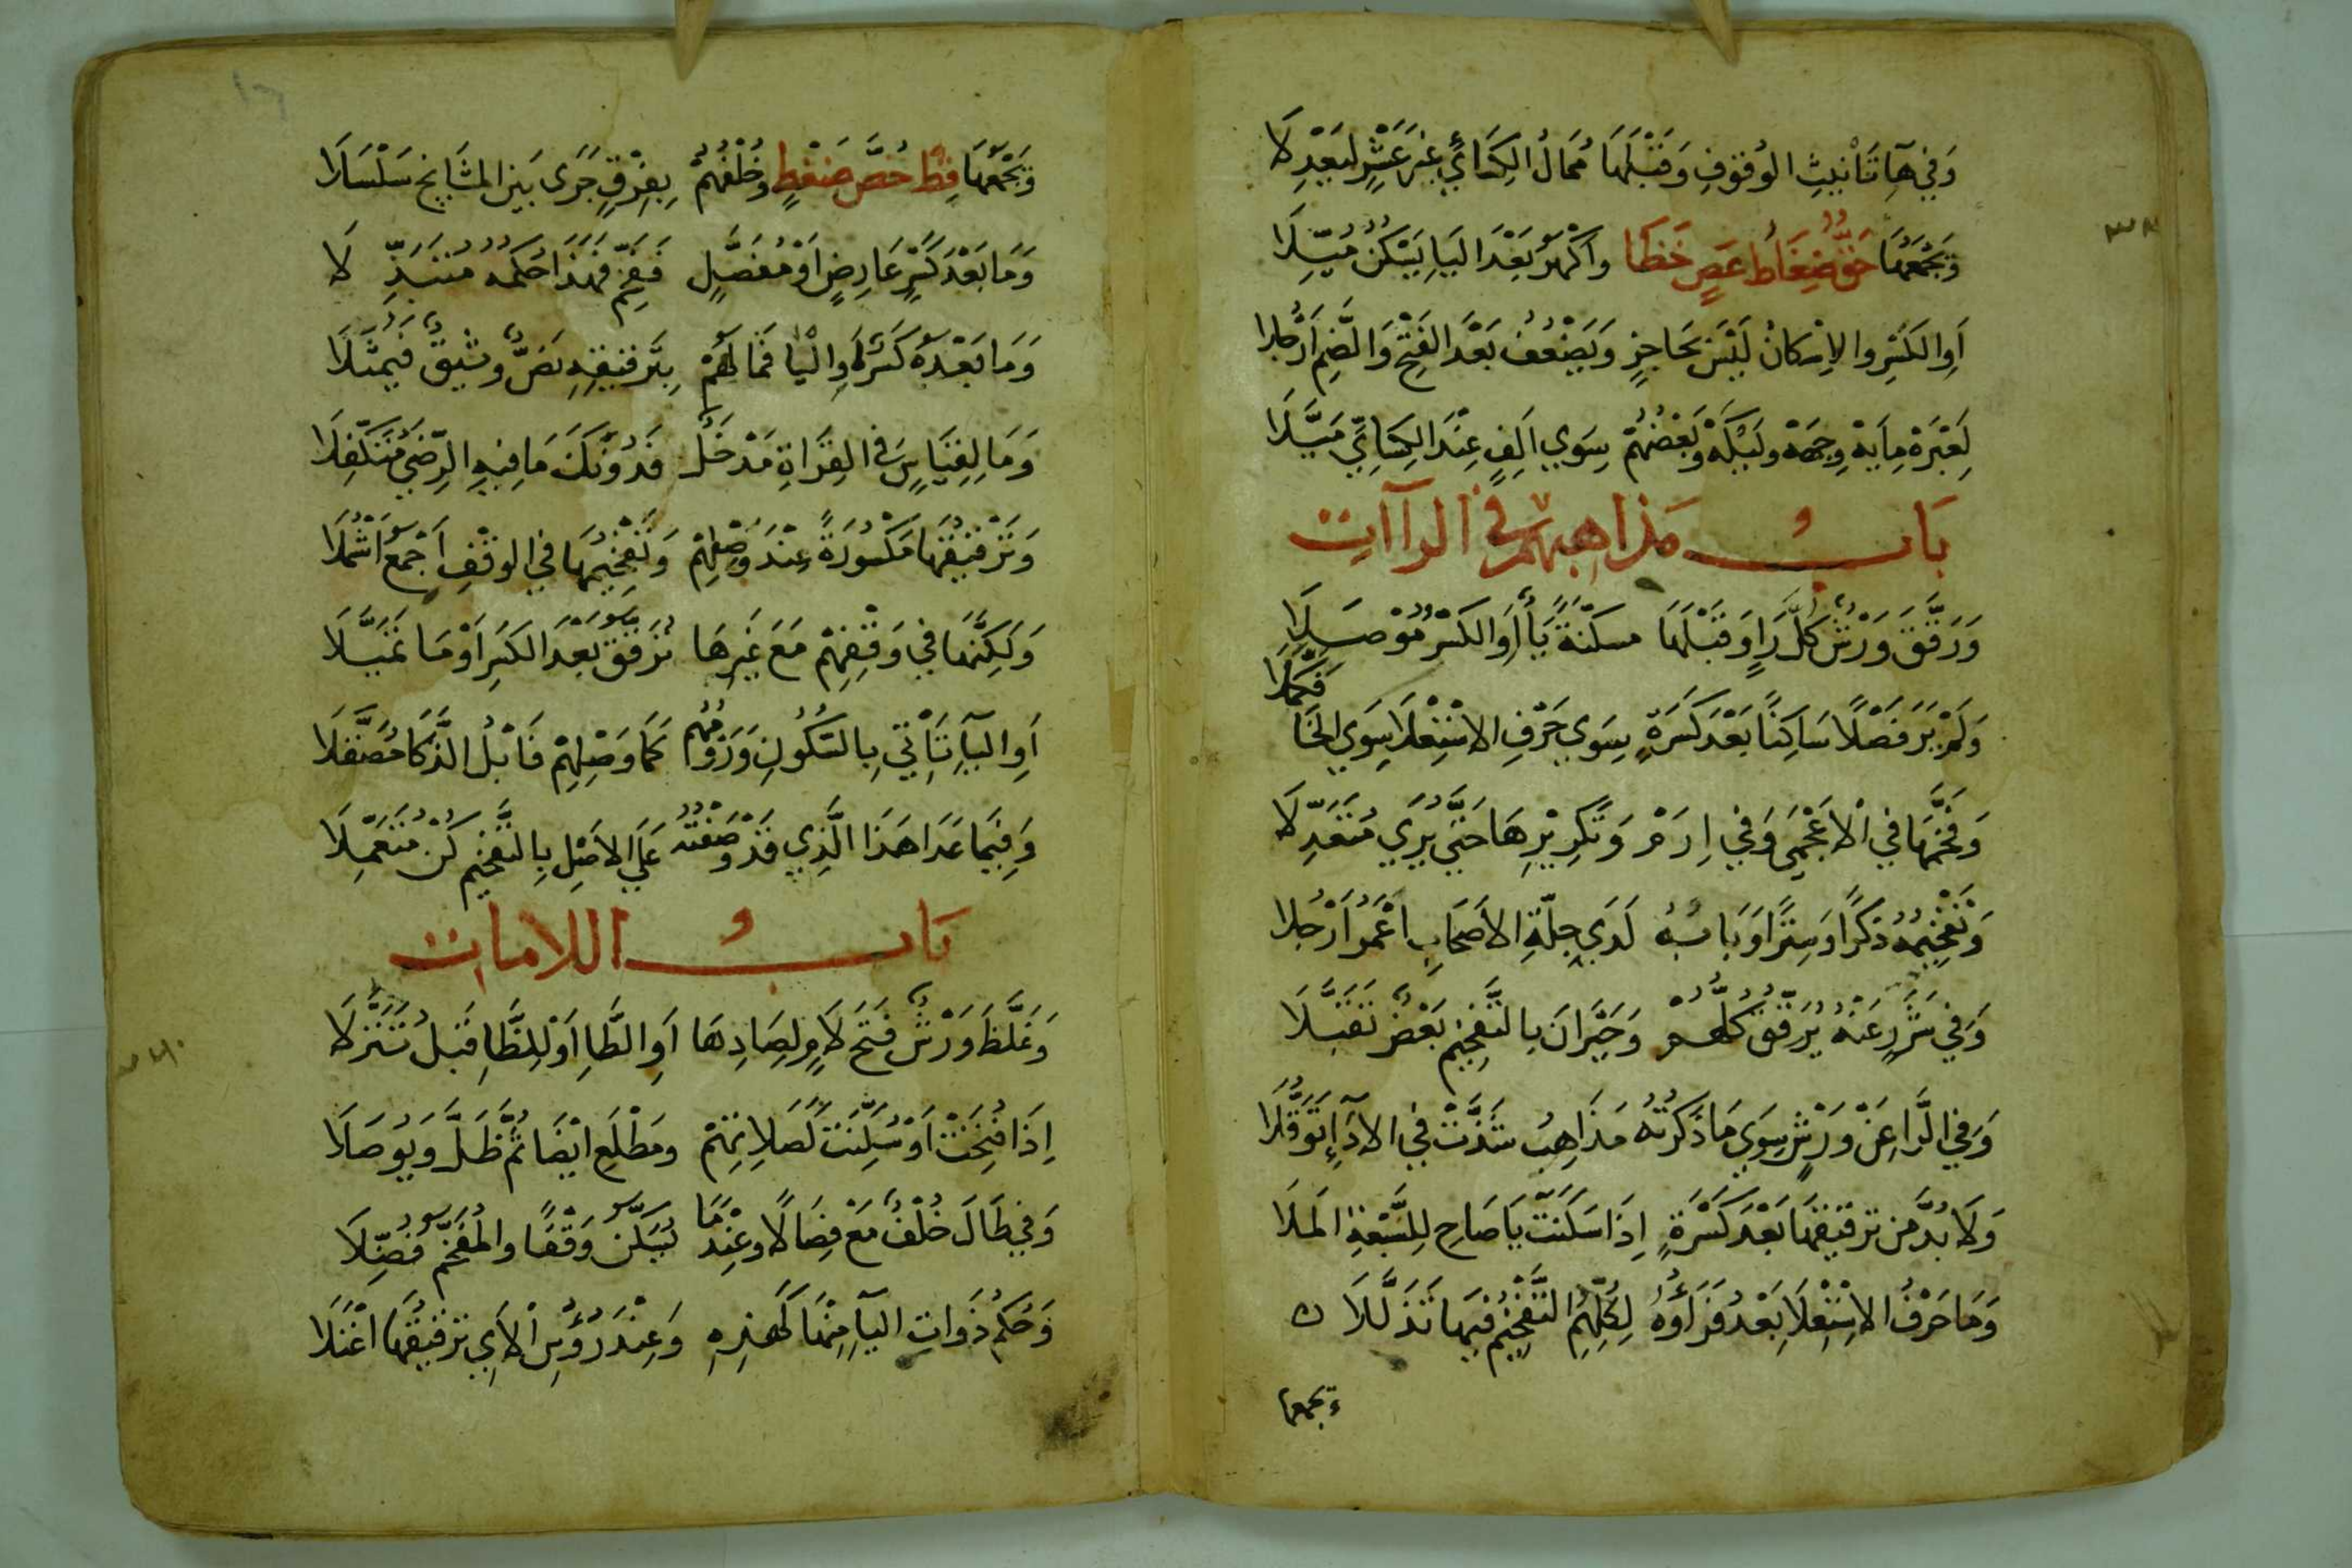 وَفِي هَآءِ تَأْنِيثِ الوُقُوفِ وَقَبْلَهَا مُمَالُ الكِسَائِي غَيْرَ عَشْرٍ لِيَعْدِلَا
وَيَجْمَعُهَا حَقٌّ ضِغَاطُ عَصٍ خَظَا وَأَكْهَرُ بَعْدَ اليَاءِ يَسْكُنُ مُيِّلَا
أَوِ الكَسْرِ وَالإِسْكَانُ لَيْسَ بِحَاجِزٍ وَيَضْعُفُ بَعْدَ الفَتْحِ وَالضَّمِّ أَرْجُلَا
لَعِبْرَهْ مِايَهْ وِجْهَهْ وَلَيْكَهْ وَبَعْضُهُمْ سِوَي أَلِفٍ عِنْدَ الكِسَائِيِّ مَيَّلَا
بَابُ مَذَاهِبِهِمْ فِي الرَّاآتِ
وَرَقَّقَ وَرْشٌ كُلَّ رَاءٍ وَقَبْلَهَا مُسَكَّنَةً يَاءٌ أَوِ الكَسْرُ مُوصَلَا
وَلَمْ يَرَ فَصْلًا سَاكِنًا بَعْدَ كَسْرَةٍ سِوَي حَرْفِ الاِسْتِعْلَا سِوَي الخَا فَكَمَّلَا
وَفَخَّمَهَا فِي الأَعْجَمِي وَفِي إِرَمْ وَتَكْرِيرِهَا حَتَّي يُرَي مُتَعَدِّلَا
وَتَفْخِيمُهُ ذِكْرًا وَسِتْرًا وَبَابُهُ لَدَي جِلَّةِ الأَصْحَابِ أَعْمَرُ أَرْجُلَا
وَفِي شَرَرٍ عَنْهُ يُرَقِّقُ كُلُّهُمْ وَحَيْرَانَ بِالتَّفْخِيمِ بَعْضٌ تَقَبَّلَا
وَفِي الرَّاءِ عَنْ وَرْشٍ سِوَي مَا ذَكَرْتُهُ مَذَاهِبُ شَذَّتْ فِي الأَدَاءِ تَوَقُّلَا
وَلَا بُدَّ مِنْ تَرْقِيقِهَا بَعْدَ كَسْرَةٍ إِذَا سَكَنَتْ يَا صَاحِ لِلسَّبْعَةِ المَلَا
وَمَا حَرْفُ الاِسْتِعْلَاءِ بَعْدُ فَرَاؤُهُ لِكُلِّهِمِ التَّفْخِيمُ فِيهَا تَذَلَّلَا
وَيَجْمَعُهَا
وَيَجْمَعُهَا قِظْ خُصَّ ضَغْطٍ وَخُلْفُهُمْ بِفِرْقٍ جَرَى بَيْنَ المَشَايِخِ سَلْسَلَا
وَمَا بَعْدَ كَسْرٍ عَارِضٍ أَوْ مُفَصَّلٍ فَفَخِّمْ فَهَذَا حُكْمُهُ مُتَبَذِّلَا
وَمَا بَعْدَهُ كَسْرٌ أَوِ اليَا فَمَا لَهُمْ بِتَرْقِيقِهِ نَصٌّ وَثِيقٌ فَيَمْثُلَا
وَمَا لِقِيَاسٍ فِي القِرَاةِ مَدْخَلٌ فَدُونَكَ مَا فِيهِ الرِّضَى مُتَكَفِّلَا
وَتَرْقِيقُهَا مَكْسُورَةً عِنْدَ وَصْلِهِمْ وَتَفْخِيمُهَا فِي الوَقْفِ أَجْمَعُ أَشْمُلَا
وَلَكِنَّهَا فِي وَقْفِهِمْ مَعَ غَيْرِهَا تُرَقَّقُ بَعْدَ الكَسْرِ أَوْ مَا تَمَيَّلَا
أَوِ اليَاءِ تَأْتِي بِالسُّكُونِ وَرَوْمُهُمْ كَمَا وَصْلِهِمْ فَابْلُ الذَّكَا مُصَقَّلَا
وَفِيمَا عَدَا هَذَا الَّذِي قَدْ وَصَفْتُهُ عَلَي الأَصْلِ بِالتَّفْخِيمِ كُنْ مُتَعَمِّلَا
بَابُ اللامَاتِ
وَغَلَّظَ وَرْشٌ فَتْحَ لَامٍ لِصَادِهَا أَوِ الطَّاءِ أَوْ لِلظَّاءِ قَبْلُ تَنَزُّلَا
إِذَا فُتِحَتْ أَوْ سُكِّنَتْ كَصَلَاتِهِمْ وَمَطْلَعِ أَيْضًا ثُمَّ ظَلَّ وَيُوصَلَا
وَفِي طَالَ خُلْفٌ مَعْ فِصَالًا وَعِنْدَمَا يُسَكَّنُ وَقْفًا وَالمُفَخَّمُ فُضِّلَا
وَحُكْمُ ذَوَاتِ اليَاءِ مِنْهَا كَهَذِهِ وَعِنْدَ رُؤُسِ الآيِ تَرْقِيقُهَا اعْتَلَا